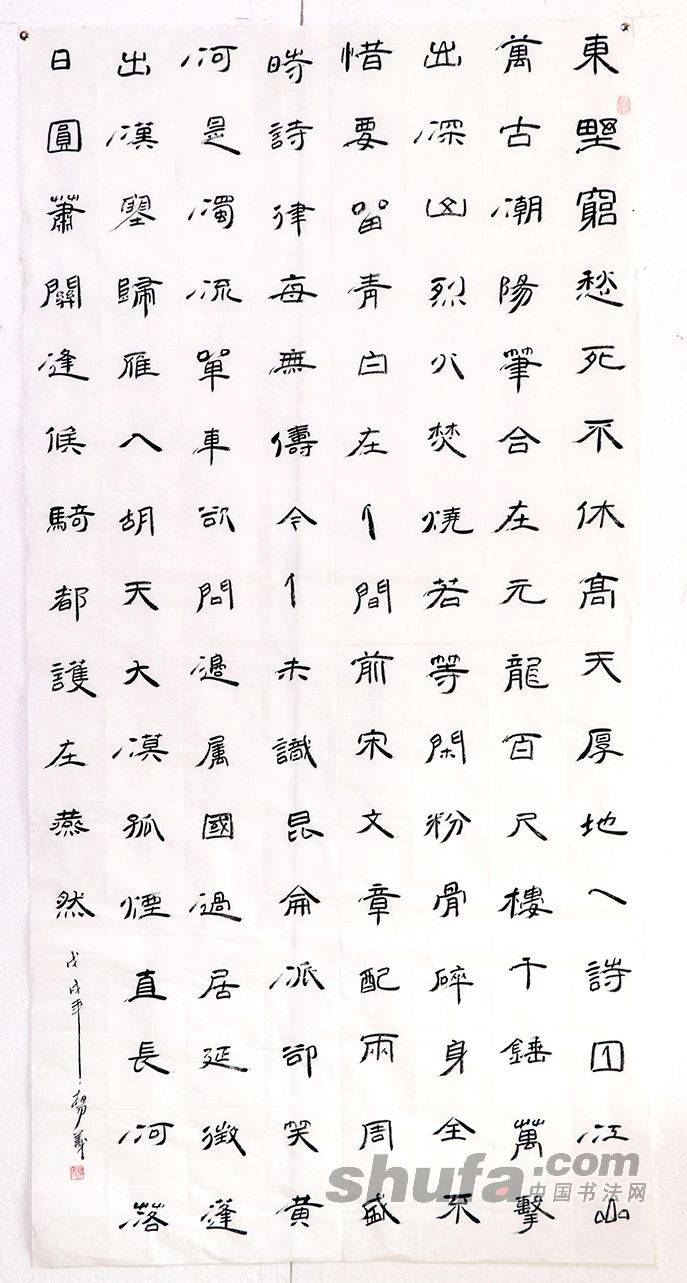 東野窮愁死不休高天厚地一詩囚江山
萬古潮陽筆合在元龍百尺樓千錘萬擊
出深山烈火焚燒若等閑粉骨碎身全不
惜要留青白在人間前宋文章配兩周盛
時詩律每無儔今人未識昆侖派卻笑黃
河是濁流單車欲問邊属國過居延徵蓬
出漢塞歸雁入胡天大漠孤煙直長河落
日圓蕭關逢候騎都護在燕然
戊戌年
shufa.com
中国书法网